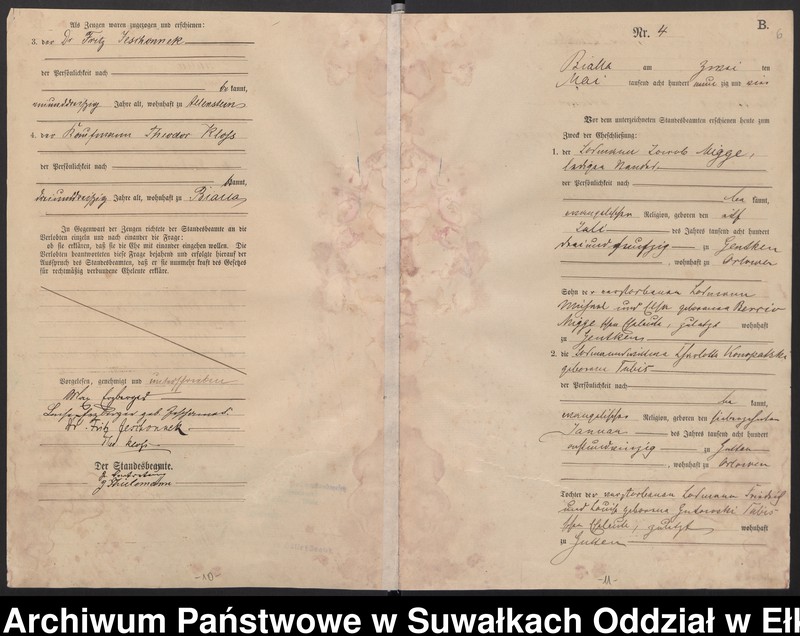 Als Zeugen waren zugezogen und erschienen:
3. der Dr Fritz Jeschonnek
der Persönlichkeit nach
be kannt,
neununddreißig Jahre alt, wohnhaft zu Allenstein
4. der Kaufmann Theodor Kloss
der Persönlichkeit nach
kannt,
dreiunddreißig Jahre alt, wohnhaft zu Bialla
In Gegenwart der Zeugen richtete der Standesbeamte an die
Verlobten einzeln und nach einander die Frage:
ob sie erklären, daß sie die Ehe mit einander eingehen wollen. Die
Verlobten beantworteten diese Frage bejahend und erfolgte hierauf der
Ausspruch des Standesbeamten, daß er sie nunmehr kraft des Gesetzes
für rechtmäßig verbundene Eheleute erkläre.
Vorgelesen, genehmigt und unterschrieben
Max
geb.
Dr. Fritz Jeschonnek.
Theo. Kloss.
Der Standesbeamte.
-10-
B.
6
Nr. 4
Bialla am zwei ten
Mai tausend acht hundert neun zig und ein
Vor dem unterzeichneten Standesbeamten erschienen heute zum
Zweck der Eheschließung:
1. der Losmann Jacob Nigge,
ledigen Standes
der Persönlichkeit nach
be kannt,
evangelischer Religion, geboren den elf
Juli des Jahres tausend acht hundert
drei und fünfzig zu Gentken
, wohnhaft zu Orlowen
Sohn der verstorbenen Losmann
Michael und Elsa geborenen
Nigge schen Eheleute, zuletzt wohnhaft
zu Gentken
2. die Losmannswittwe Charlotte Konopatzki
geborene Tubis
der Persönlichkeit nach
be kannt,
evangelischer Religion, geboren den siebenzehnten
Januar des Jahres tausend acht hundert
zu Gutten
, wohnhaft zu Orlowen
Tochter der verstorbenen Losmann Friedrich
und Louise geborene Gutowski Tubis
schen Eheleute, zuletzt wohnhaft
zu Gutten
-11-
Archiwum Państwowe w Suwałkach Oddział w Ełk